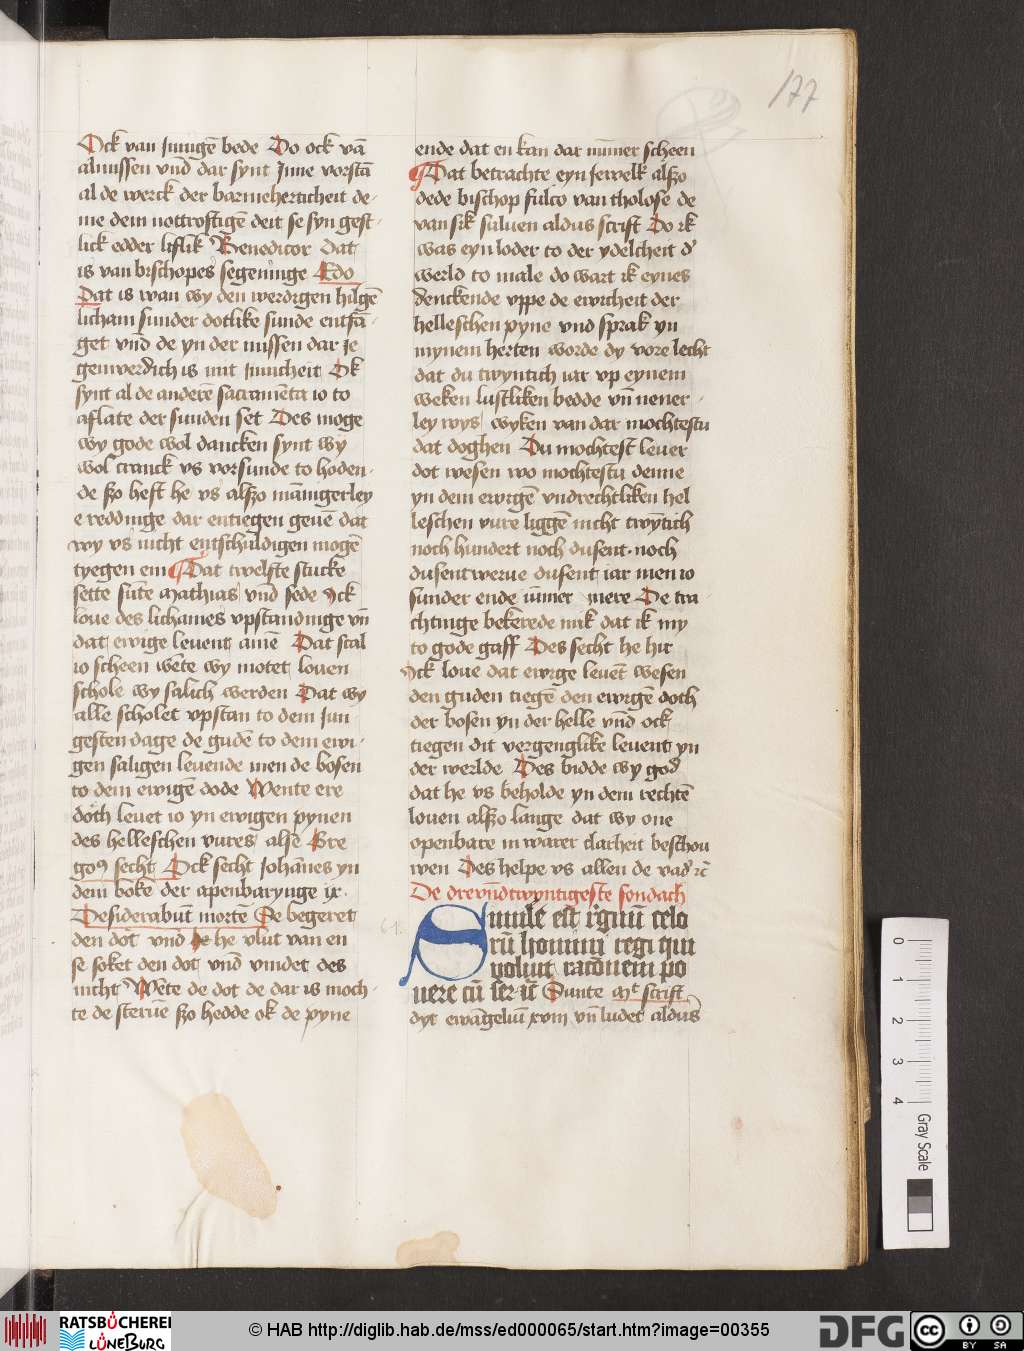 177
Ock van Jnnigē bede Do ock vā
almissen vn̄d dar synt Jnne vorstā
al de werck der barmeherticheit de-
me dem nottroftigē deit se syn gest-
lick edder liflik Benedictor Dat
is van bischopes segeninge Edo
Dat is wan wy den werdigen hilgē
licham sunder dotlike sunde entfā-
get vn̄d de yn der missen dar ie
genwerdich is mit Jnnicheit Ok
synt al de anderē sacramēta io to
aflate der sunden set Des moge
wy gode wol dancken synt wy
wol cranck vs vor sunde to hoden-
de szo heft he vs alszo mānigerley
e reddinge dar entiegen geuē dat
wy vs nicht entschuldigen mogē
tyegen em Dat twelfte stucke
sette sūte Mathias vn̄d sede Ock
loue des lichames vpstandinge vn̄
dat ewige leuent amē Dat scal
io scheen wete wy motet louen
schole wy salich werden Dat wy
alle scholet vpstan to dem Jun
gesten dage de gudē to dem ewi-
gen saligen leuende men de bosen
to dem ewigē dode Wente ere
doch leuet io yn ewigen pynen
des helleschen vures alse Gre
goꝰ secht Ock secht Johānes yn
dem boke der apenbarynge ix.
Desiderabūt mortē Se begeret
den dot vnd he vlut van en
se soket den dot vnd vindet des
nicht Wēte de dot de dar is moch-
te de steruē szo hedde ok de pyne
ende dat en kan dar nūmer scheen
Dat betrachte eyn iewelk alszo
dede bischop fulco van tholose de
van sik suluen aldus scrift Do ik
was eyn loder to der ydelcheit dʼ
werld to male do wart ik eynes
denckende vppe de ewicheit der
helleschen pyne vnd sprak yn
mynem herten worde dy vore lecht
dat du twyntich iar vp eynem
weken lustliken bedde vn̄ nener-
ley wys wyken van dar mochtestu
dat doghen Du mochtest leuer
dot wesen wo mochtestu denne
yn dem ewigē vndrechtliken hel
leschen vure liggē nicht twȳtich
noch hundert noch dusent noch
dusentwerue dusent iar men io
sunder ende ūmer mere De tra
chtinge bekerede mik dat ik my
to gode gaff Des secht he hir
Ock loue dat ewige leuēt wesen
den guden tiegē den ewigē doth
der bosen yn der helle vnd ock
tiegen dit vergenglike leuent yn
der werlde Des bidde wy god
dat he vs beholde yn dem rechtē
louen alszo lange dat wy one
openbare in warer clarheit beschou
wen Des helpe vs allen de vadʼ ⁊c̄
De drevn̄dtwyntigeste sondach
Simile est rg̅nū celo
rū homini regi qui
voluit racōnem po
nere cū ser ꝛc̄ Sunte Mt scrift
dyt ewāgeliū xviii vn̄ ludet aldus
0
1
2
3
4
Gray Scale
RATSBÜCHEREI
LÜNEBURG
© HAB http://diglib.hab.de/mss/ed000065/start.htm?image=00355
DFG
cc
BY SA